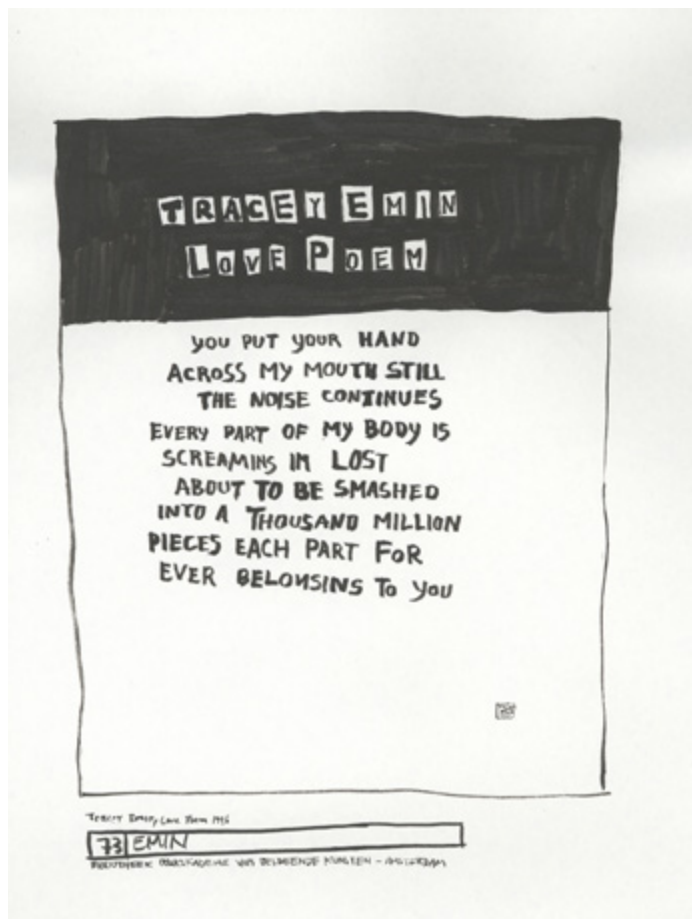 TRACEY EMIN
LOVE POEM
YOU PUT YOUR HAND
ACROSS MY MOUTH STILL
THE NOISE CONTINUES
EVERY PART OF MY BODY IS
SCREAMING IM LOST
ABOUT TO BE SMASHED
INTO A THOUSAND MILLION
PIECES EACH PART FOR
EVER BELONGING TO YOU
TRACEY EMIN, LOVE POEM 1996
73 EMIN
BIBLIOTHEEK RIJKSAKADEMIE VAN BEELDENDE KUNSTEN - AMSTERDAM